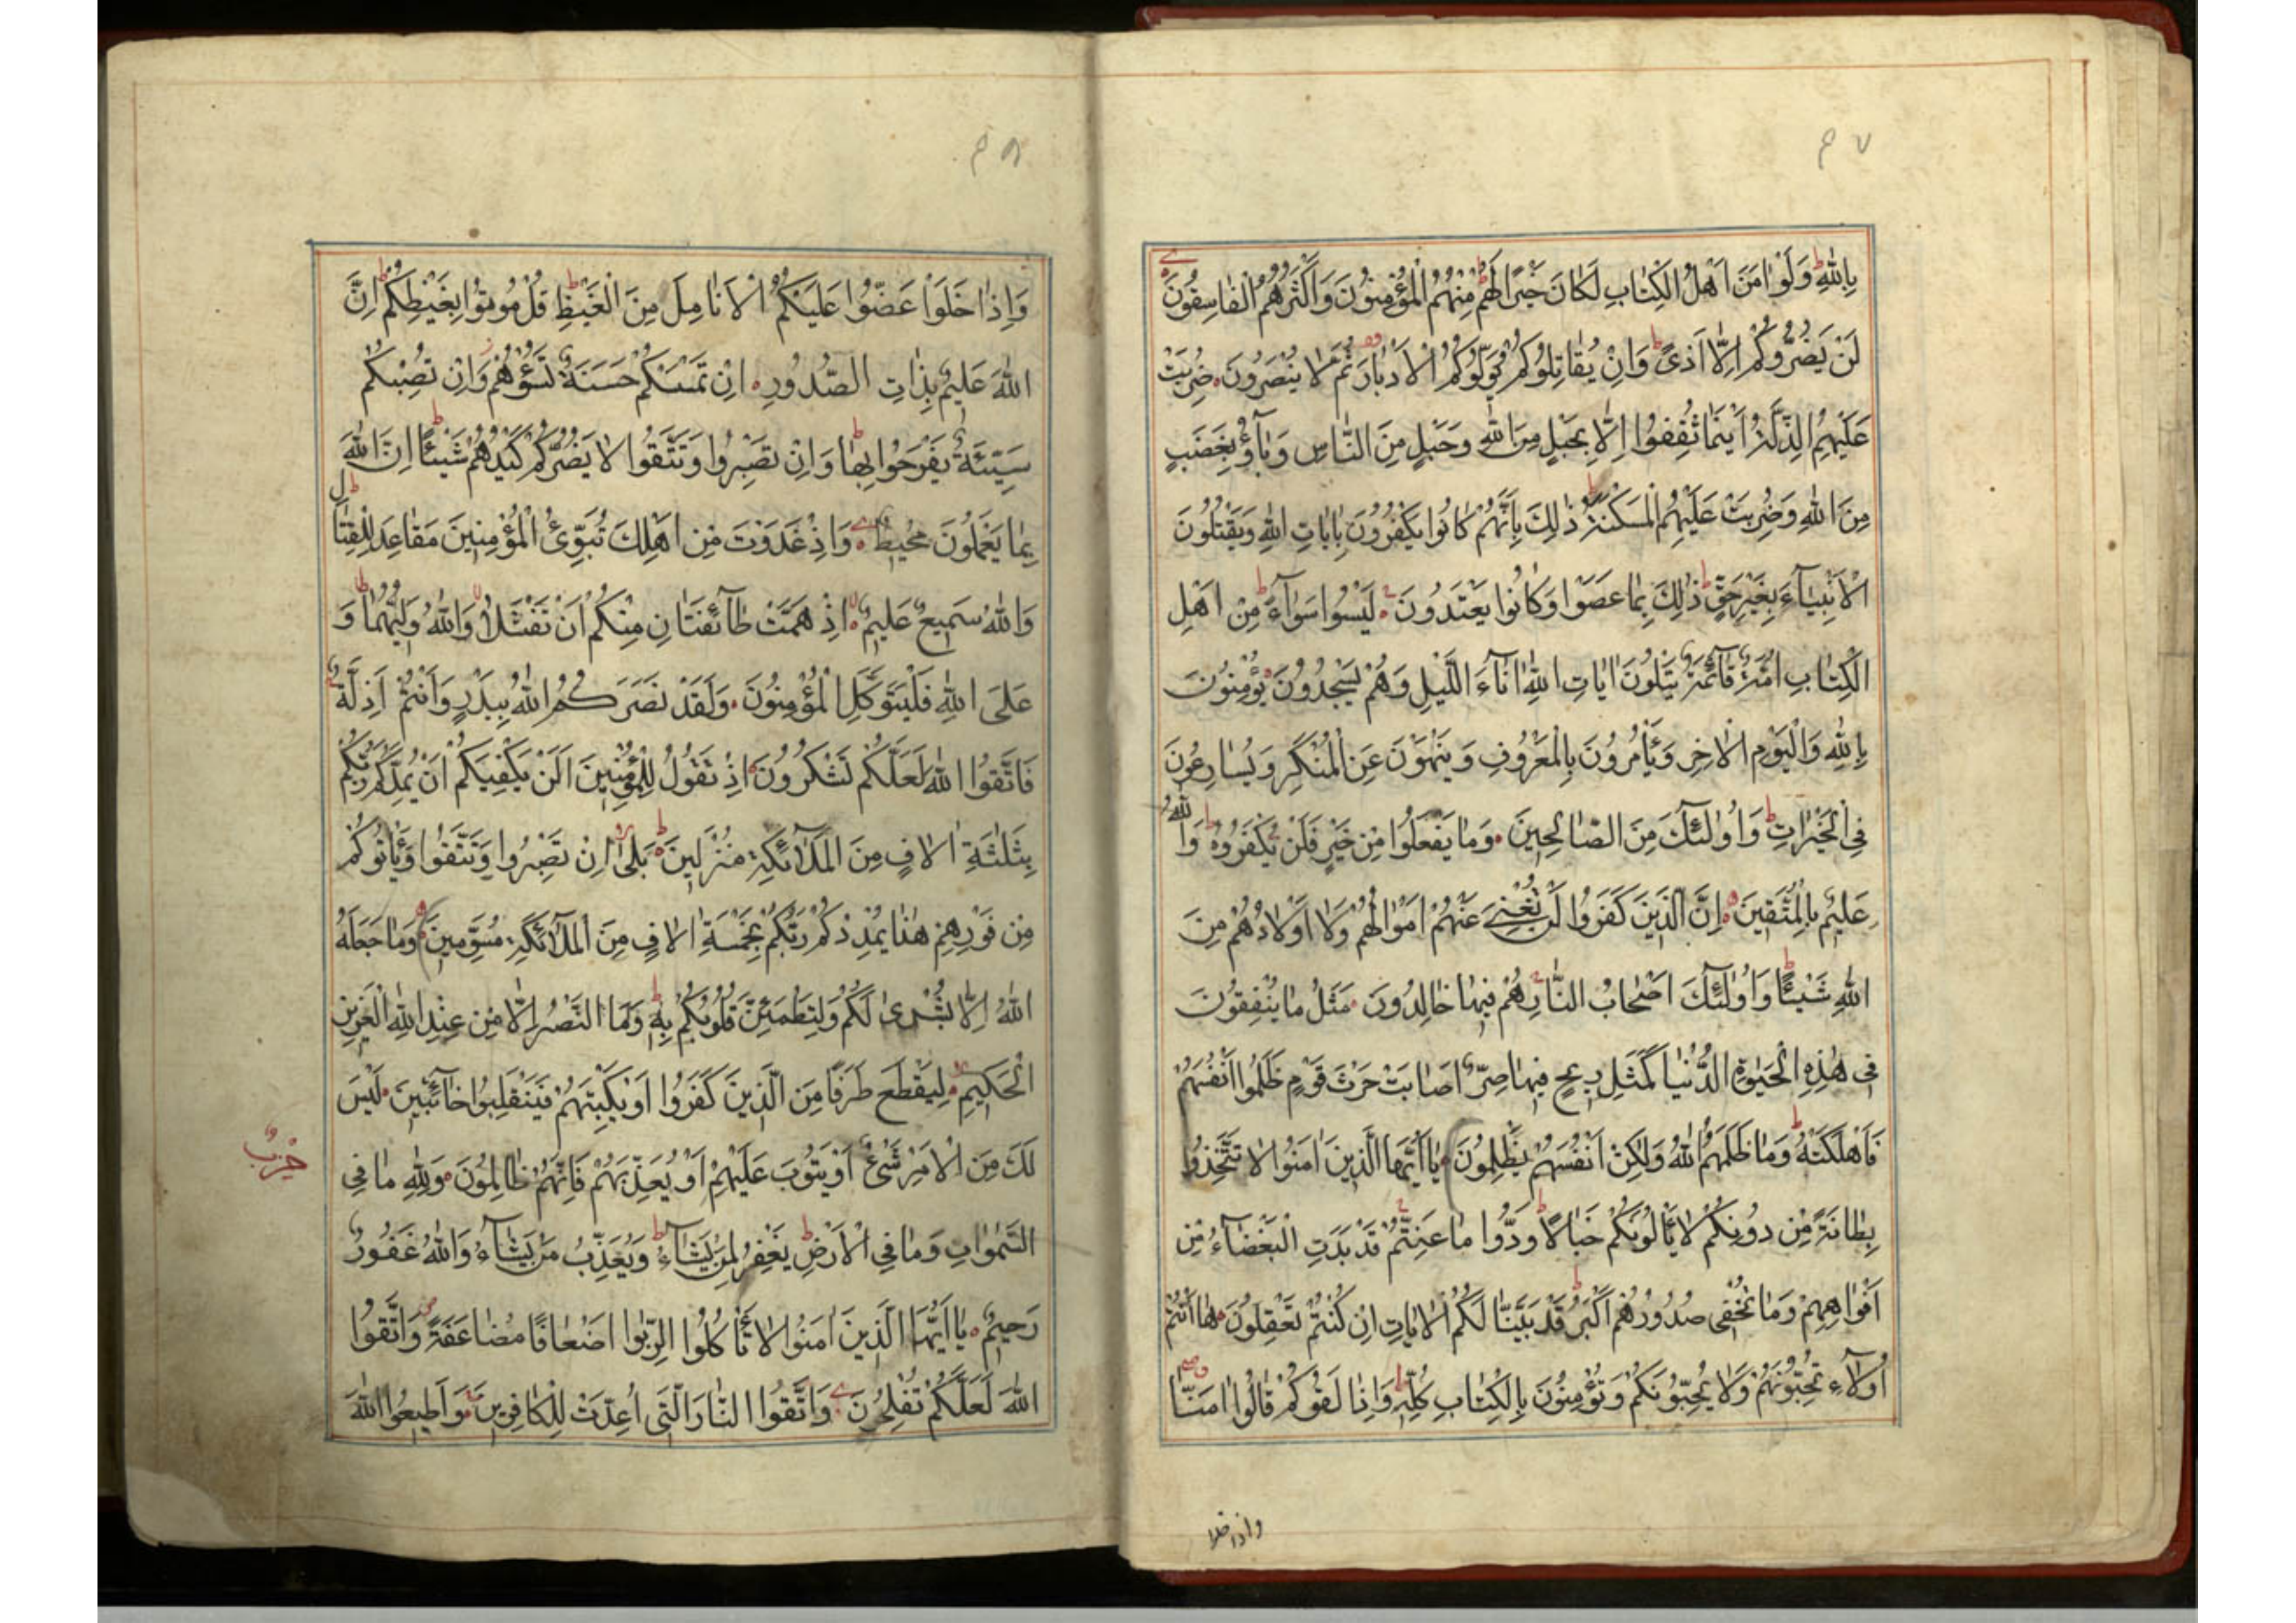 ٤٧
بِاللّٰهِ وَلَوْ اٰمَنَ اَهْلُ الْكِتٰابِ لَكٰانَ خَيْرًا لَهُمْ مِنْهُمُ الْمُؤْمِنُونَ وَاَكْثَرُهُمُ الْفٰاسِقُونَ
لَنْ يَضُرُّوكُمْ اِلّٰا اَذىً وَاِنْ يُقٰاتِلُوكُمْ يُوَلُّوكُمُ الْاَدْبٰارَ ثُمَّ لٰا يُنْصَرُونَ ضُرِبَتْ
عَلَيْهِمُ الذِّلَّةُ اَيْنَمٰا ثُقِفُوا اِلّٰا بِحَبْلٍ مِنَ اللّٰهِ وَحَبْلٍ مِنَ النّٰاسِ وَبٰآؤُ بِغَضَبٍ
مِنَ اللّٰهِ وَضُرِبَتْ عَلَيْهِمُ الْمَسْكَنَةُ ذٰلِكَ بِاَنَّهُمْ كٰانُوا يَكْفُرُونَ بِاٰيٰاتِ اللّٰهِ وَيَقْتُلُونَ
الْاَنْبِيٰآءَ بِغَيْرِ حَقٍّ ذٰلِكَ بِمٰا عَصَوْا وَكٰانُوا يَعْتَدُونَ لَيْسُوا سَوٰآءً مِنْ اَهْلِ
الْكِتٰابِ اُمَّةٌ قٰآئِمَةٌ يَتْلُونَ اٰيٰاتِ اللّٰهِ اٰنٰآءَ اللَّيْلِ وَهُمْ يَسْجُدُونَ يُؤْمِنُونَ
بِاللّٰهِ وَالْيَوْمِ الْاٰخِرِ وَيَأْمُرُونَ بِالْمَعْرُوفِ وَيَنْهَوْنَ عَنِ الْمُنْكَرِ وَيُسٰارِعُونَ
فِي الْخَيْرٰاتِ وَاُولٰٓئِكَ مِنَ الصّٰالِحِينَ وَمٰا يَفْعَلُوا مِنْ خَيْرٍ فَلَنْ يُكْفَرُوهُ وَاللّٰهُ
عَلِيمٌ بِالْمُتَّقِينَ اِنَّ الَّذِينَ كَفَرُوا لَنْ تُغْنِيَ عَنْهُمْ اَمْوٰالُهُمْ وَلٰا اَوْلٰادُهُمْ مِنَ
اللّٰهِ شَيْئًا وَاُولٰٓئِكَ اَصْحٰابُ النّٰارِ هُمْ فِيهٰا خٰالِدُونَ مَثَلُ مٰا يُنْفِقُونَ
فِي هٰذِهِ الْحَيٰوةِ الدُّنْيٰا كَمَثَلِ رِيحٍ فِيهٰا صِرٌّ اَصٰابَتْ حَرْثَ قَوْمٍ ظَلَمُوا اَنْفُسَهُمْ
فَاَهْلَكَتْهُ وَمٰا ظَلَمَهُمُ اللّٰهُ وَلٰكِنْ اَنْفُسَهُمْ يَظْلِمُونَ يٰا اَيُّهَا الَّذِينَ اٰمَنُوا لٰا تَتَّخِذُوا
بِطٰانَةً مِنْ دُونِكُمْ لٰا يَأْلُونَكُمْ خَبٰالًا وَدُّوا مٰا عَنِتُّمْ قَدْ بَدَتِ الْبَغْضٰآءُ مِنْ
اَفْوٰاهِهِمْ وَمٰا تُخْفِى صُدُورُهُمْ اَكْبَرُ قَدْ بَيَّنّٰا لَكُمُ الْاٰيٰاتِ اِنْ كُنْتُمْ تَعْقِلُونَ هٰا اَنْتُمْ
اُولٰآءِ تُحِبُّونَهُمْ وَلٰا يُحِبُّونَكُمْ وَتُؤْمِنُونَ بِالْكِتٰابِ كُلِّهِ وَاِذٰا لَقُوكُمْ قٰالُوا اٰمَنّٰا
واذا خلوا
٤٨
وَاِذٰا خَلَوْا عَضُّوا عَلَيْكُمُ الْاَنٰامِلَ مِنَ الْغَيْظِ قُلْ مُوتُوا بِغَيْظِكُمْ اِنَّ
اللّٰهَ عَلِيمٌ بِذٰاتِ الصُّدُورِ اِنْ تَمْسَسْكُمْ حَسَنَةٌ تَسُؤْهُمْ وَاِنْ تُصِبْكُمْ
سَيِّئَةٌ يَفْرَحُوا بِهٰا وَاِنْ تَصْبِرُوا وَتَتَّقُوا لٰا يَضُرُّكُمْ كَيْدُهُمْ شَيْئًا اِنَّ اللّٰهَ
بِمٰا يَعْمَلُونَ مُحِيطٌ وَاِذْ غَدَوْتَ مِنْ اَهْلِكَ تُبَوِّئُ الْمُؤْمِنِينَ مَقٰاعِدَ لِلْقِتٰالِ
وَاللّٰهُ سَمِيعٌ عَلِيمٌ اِذْ هَمَّتْ طٰآئِفَتٰانِ مِنْكُمْ اَنْ تَفْشَلٰا وَاللّٰهُ وَلِيُّهُمٰا وَ
عَلَى اللّٰهِ فَلْيَتَوَكَّلِ الْمُؤْمِنُونَ وَلَقَدْ نَصَرَكُمُ اللّٰهُ بِبَدْرٍ وَاَنْتُمْ اَذِلَّةٌ
فَاتَّقُوا اللّٰهَ لَعَلَّكُمْ تَشْكُرُونَ اِذْ تَقُولُ لِلْمُؤْمِنِينَ اَلَنْ يَكْفِيَكُمْ اَنْ يُمِدَّكُمْ رَبُّكُمْ
بِثَلٰثَةِ اٰلٰافٍ مِنَ الْمَلٰآئِكَةِ مُنْزَلِينَ بَلٰى اِنْ تَصْبِرُوا وَتَتَّقُوا وَيَأْتُوكُمْ
مِنْ فَوْرِهِمْ هٰذٰا يُمْدِدْكُمْ رَبُّكُمْ بِخَمْسَةِ اٰلٰافٍ مِنَ الْمَلٰآئِكَةِ مُسَوِّمِينَ وَمٰا جَعَلَهُ
اللّٰهُ اِلّٰا بُشْرٰى لَكُمْ وَلِتَطْمَئِنَّ قُلُوبُكُمْ بِهِ وَمَا النَّصْرُ اِلّٰا مِنْ عِنْدِ اللّٰهِ الْعَزِيزِ
الْحَكِيمِ لِيَقْطَعَ طَرَفًا مِنَ الَّذِينَ كَفَرُوا اَوْ يَكْبِتَهُمْ فَيَنْقَلِبُوا خٰآئِبِينَ لَيْسَ
لَكَ مِنَ الْاَمْرِ شَيْءٌ اَوْ يَتُوبَ عَلَيْهِمْ اَوْ يُعَذِّبَهُمْ فَاِنَّهُمْ ظٰالِمُونَ وَلِلّٰهِ مٰا فِي
حِزْبٌ
السَّمٰوٰاتِ وَمٰا فِي الْاَرْضِ يَغْفِرُ لِمَنْ يَشٰآءُ وَيُعَذِّبُ مَنْ يَشٰآءُ وَاللّٰهُ غَفُورٌ
رَحِيمٌ يٰا اَيُّهَا الَّذِينَ اٰمَنُوا لٰا تَأْكُلُوا الرِّبٰوا اَضْعٰافًا مُضٰاعَفَةً وَاتَّقُوا
اللّٰهَ لَعَلَّكُمْ تُفْلِحُونَ وَاتَّقُوا النّٰارَ الَّتِي اُعِدَّتْ لِلْكٰافِرِينَ وَاَطِيعُوا اللّٰهَ